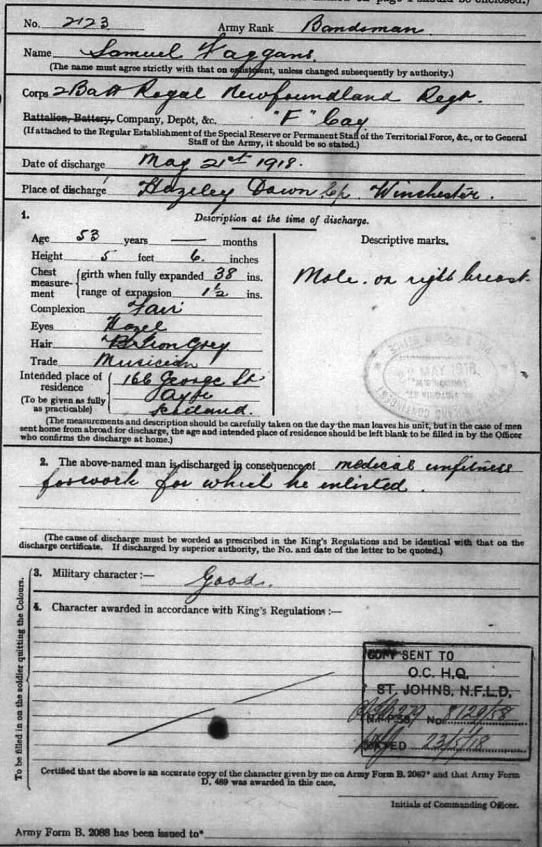 No. 2123 Army Rank Bandsman
Name Samuel Faggans.
(The name must agree strictly with that on enlistment, unless changed subsequently by authority.)
Corps 2 Batt Royal Newfoundland Regt.
Battalion, Battery, Company, Depôt, &c. "F" Coy
(If attached to the Regular Establishment of the Special Reserve or Permanent Staff of the Territorial Force, &c., or to General
Staff of the Army, it should be so stated.)
Date of discharge May 21st 1918.
Place of discharge Hazeley Down Cp. Winchester.
1. Description at the time of discharge.
Age 53 years — months
Height 5 feet 6. inches
Chest measure-ment
girth when fully expanded 38 ins.
range of expansion 1½ ins.
Complexion Fair
Eyes Hazel
Hair Grey
Trade Musician
Intended place of residence 166 George St
(To be given as fully as practicable) Ayr
Scotland.
Descriptive marks.
Mole. on right breast
MAY 1918
(The measurements and description should be carefully taken on the day the man leaves his unit, but in the case of men
sent home from abroad for discharge, the age and intended place of residence should be left blank to be filled in by the Officer
who confirms the discharge at home.)
2. The above-named man is discharged in consequence of medical unfitness
for work for which he enlisted.
(The cause of discharge must be worded as prescribed in the King's Regulations and be identical with that on the
discharge certificate. If discharged by superior authority, the No. and date of the letter to be quoted.)
To be filled in on the soldier quitting the Colours.
3. Military character:— Good.
4. Character awarded in accordance with King's Regulations:—
COPY SENT TO
O.C. H.Q.
ST. JOHNS, N.F.LD,
No.
DATED 23/5/18
Certified that the above is an accurate copy of the character given by me on Army Form B. 2067* and that Army Form
D. 489 was awarded in this case.
Initials of Commanding Officer.
Army Form B. 2088 has been issued to*